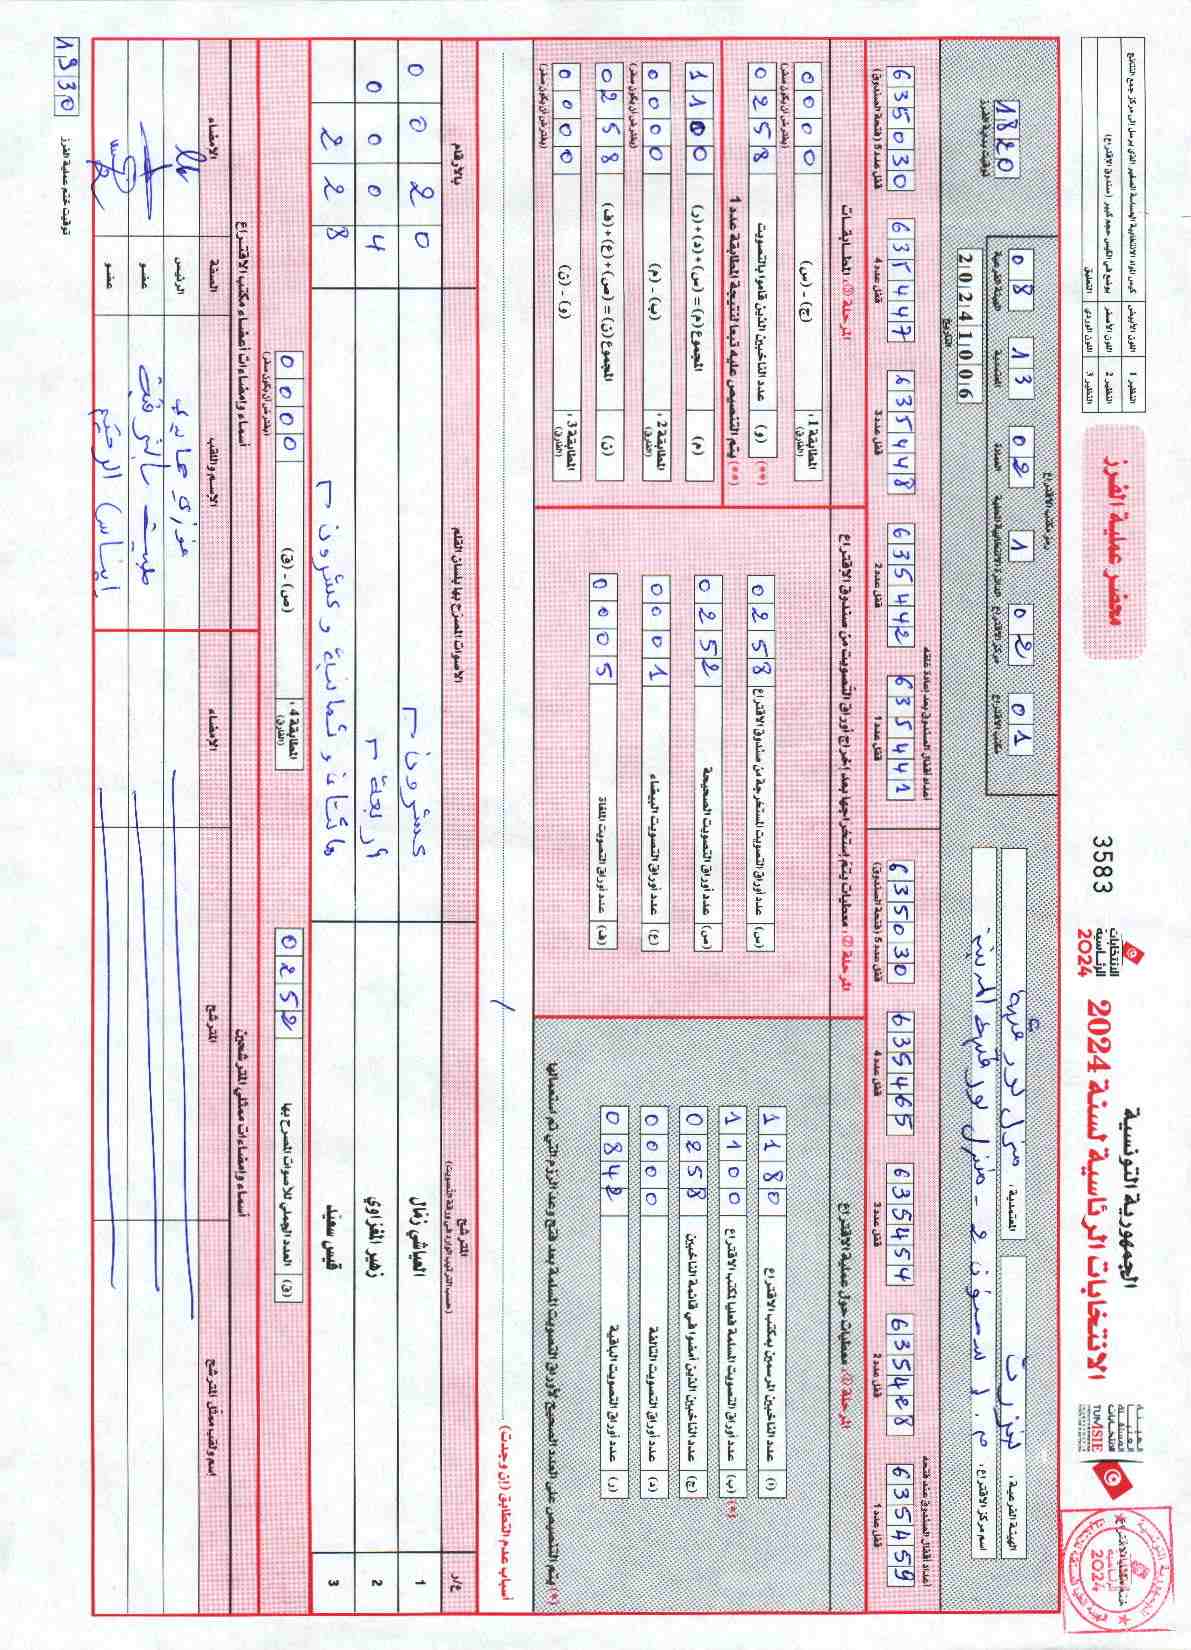 الجمهورية التونسية
الانتخابات الرئاسية لسنة 2024
الانتخابات
الرئاسية
2024
3583
محضر عملية الفرز
النظير 1
اللون الأبيض
النظير 2
اللون الأصفر
يوضع في الكيس حجم كبير (صندوق الاقتراع)
النظير 3
اللون الوردي
التعليق
TUNISIE
الهيئة الفرعية:
بنزرت
المعتمدية:
منزل بورقيبة
اسم مركز الاقتراع:
رمز مكتب الاقتراع
08 13 02 1 02 01
الهيئة الفرعية
المعتمدية
العمادة
الدائرة الانتخابية المحلية
مركز الاقتراع
مكتب الاقتراع
التاريخ
20241006
1820
توقيت بداية الفرز
أعداد أقفال الصندوق عند فتحه
635459
قفل عدد 1
قفل عدد 2
635454
قفل عدد 3
635465
قفل عدد 4
635030
قفل عدد 5 (فتحة الصندوق)
أعداد أقفال الصندوق بعد إعادة غلقه
635441
قفل عدد 1
635442
قفل عدد 2
635448
قفل عدد 3
635447
قفل عدد 4
635030
قفل عدد 5 (فتحة الصندوق)
المرحلة ①: معطيات حول عملية الاقتراع
(أ) عدد الناخبين المرسمين بمكتب الاقتراع 1180
(ب) (*) عدد أوراق التصويت المسلمة فعليا لمكتب الاقتراع 1100
(ج) عدد الناخبين الذين أمضوا في قائمة الناخبين 0258
(د) عدد أوراق التصويت التالفة 0000
(ر) عدد أوراق التصويت الباقية 0842
(*) يتم التنصيص على العدد الصحيح لأوراق التصويت المسلمة بعد فتح وعد الرزم التي تم استعمالها
المرحلة ②: معطيات يتم استخراجها بعد إخراج أوراق التصويت من صندوق الاقتراع
(س) عدد أوراق التصويت المستخرجة من صندوق الاقتراع 0258
(ص) عدد أوراق التصويت الصحيحة 0252
(ع) عدد أوراق التصويت البيضاء 0001
(ف) عدد أوراق التصويت الملغاة 0005
المرحلة ③: المطابقات
المطابقة 1: (الفارق) (ج) - (س) 0000
(يفترض أن يكون صفر)
(**) (و) عدد الناخبين الذين قاموا بالتصويت 0258
(**) يتم التنصيص عليه تبعا لنتيجة المطابقة عدد 1
(م) المجموع (م) = (ج)+(د)+(ر) 1100
المطابقة 2: (الفارق) (ب) - (م) 0000
(يفترض أن يكون صفر)
(ن) المجموع (ن) = (ص)+(ع)+(ف) 0258
المطابقة 3: (الفارق) (و) - (ن) 0000
(يفترض أن يكون صفر)
أسباب عدم التطابق (إن وجدت)
ع/ر
المترشح
(حسب الترتيب الوارد في ورقة التصويت)
الأصوات المصرح بها بلسان القلم
بالأرقام
1 العياشي زمال عشرون 0020
2 زهير المغزاوي أربعة 0004
3 قيس سعيد مائتان وثمانية وعشرون 0228
(ق) العدد الجملي للأصوات المصرح بها 0252
المطابقة 4: (الفارق) (ص) - (ق) 0000
(يفترض أن يكون صفر)
أسماء وإمضاءات ممثلي المترشحين
اسم ولقب ممثل المترشح
المترشح
الإمضاء
أسماء وإمضاءات أعضاء مكتب الاقتراع
الاسم واللقب
الصفة
الامضاء
الرئيس
عضو
عضو
1930
توقيت ختم عملية الفرز